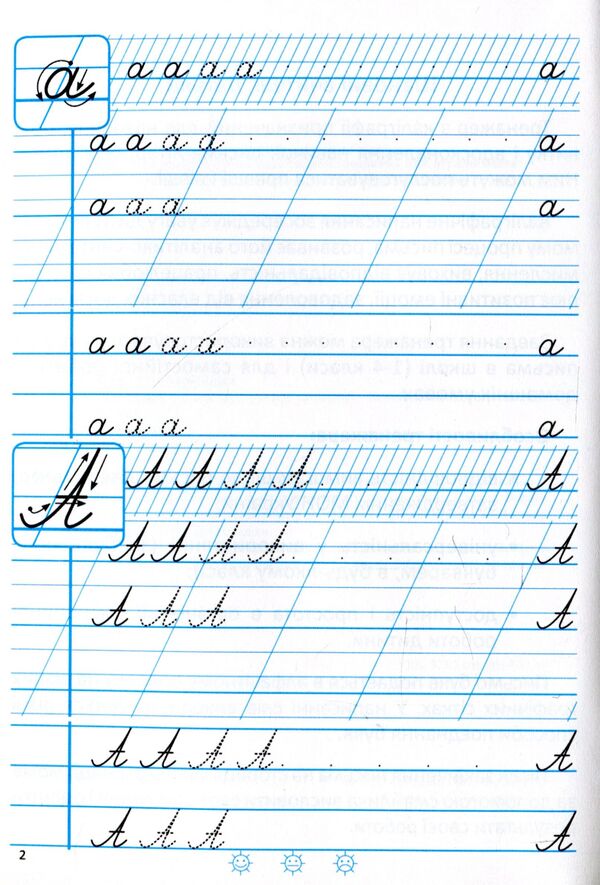 а
а а а а а
а а а а а
а а а а
а а а а а
а а а а
А
А А А А А
А А А А А
А А А А
А А А А А
А А А А
2